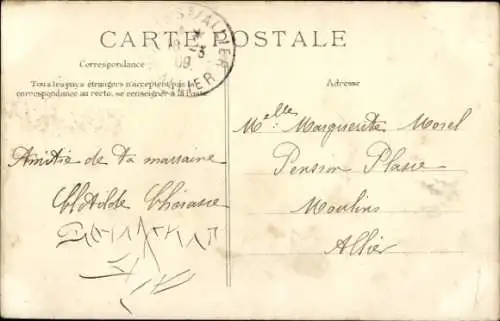 CARTE POSTALE
Correspondance
Tous les pays étrangers n'acceptent pas la
correspondance au recto, se renseigner à la Poste.
Adresse
ALLIER
18 -3
09
Amitié de ta marraine
Clotilde
Melle Marguerite Morel
Pension
Moulins
Allier